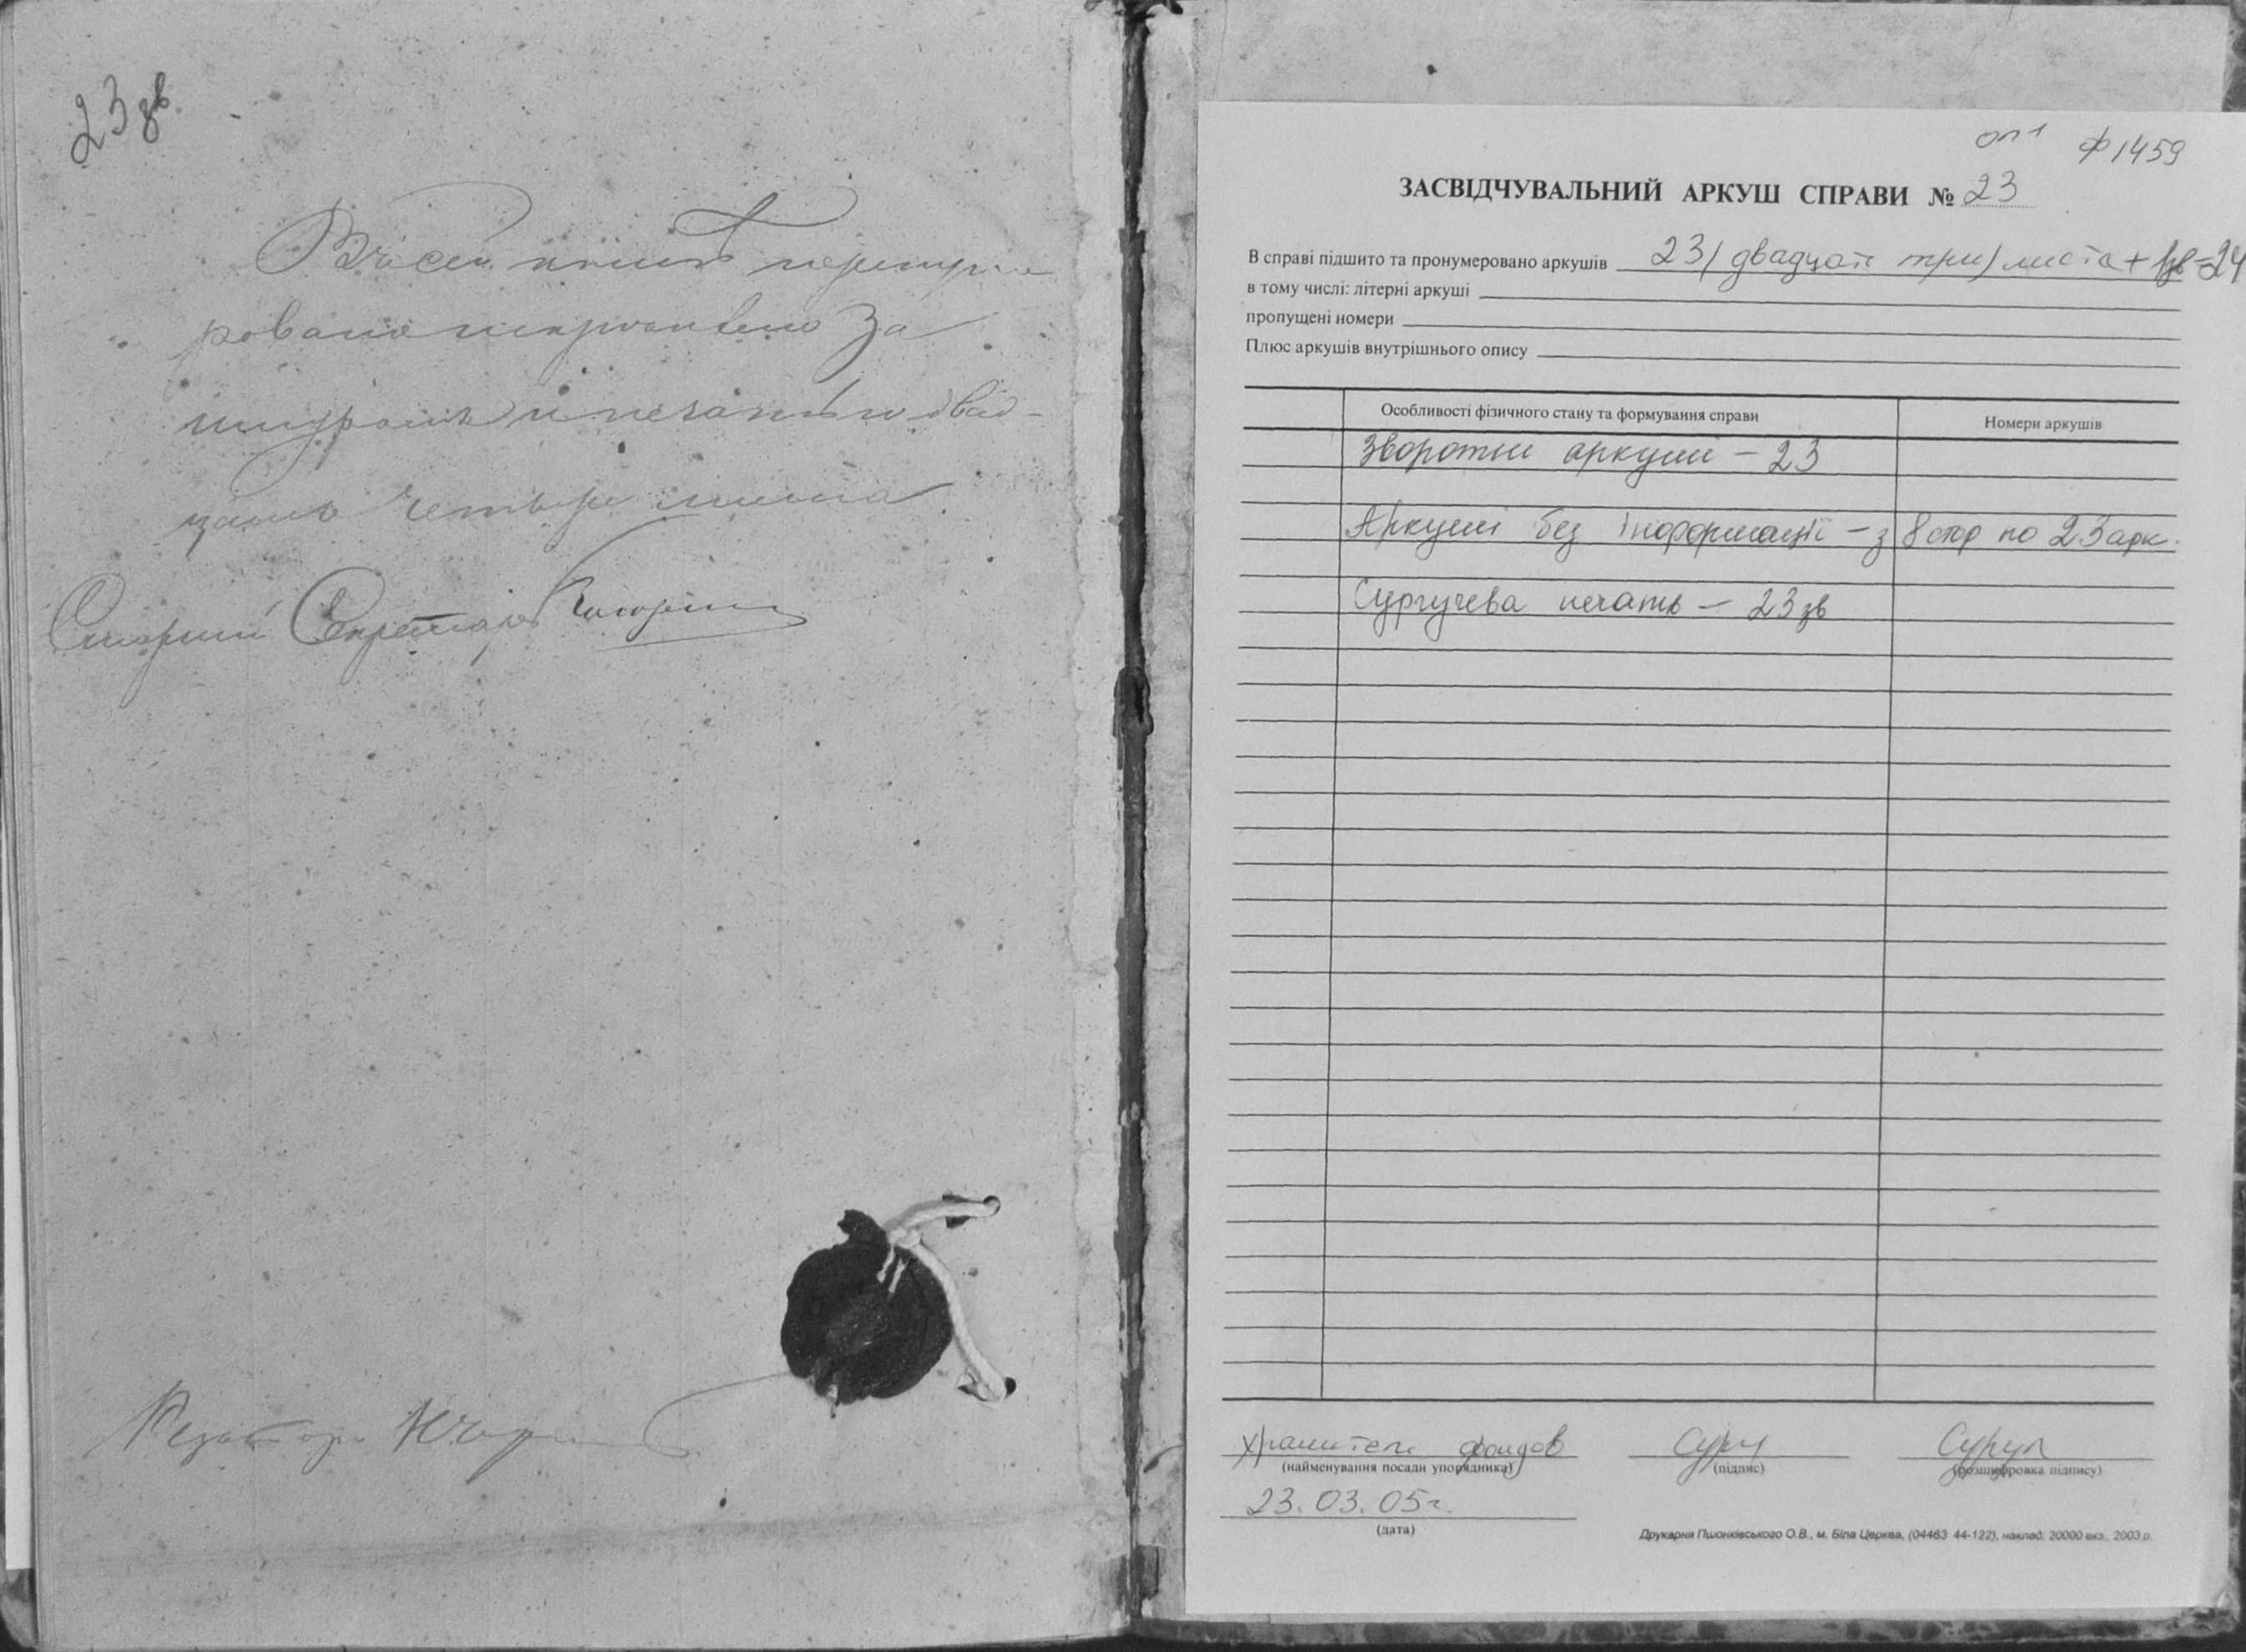 23 зв.
Въ сей книгѣ перенуме
ровано и скреплено за
шнуромъ и печатью двад-
цать четыре листа
Старший Секретарь
оп 1 ф 1459
ЗАСВІДЧУВАЛЬНИЙ АРКУШ СПРАВИ № 23
В справі підшито та пронумеровано аркушів 23 (двадцать три) листа + 1зв = 24
в тому числі: літерні аркуші
пропущені номери
Плюс аркушів внутрішнього опису
Особливості фізичного стану та формування справи Номери аркушів
Зворотні аркуші – 23
Аркуші без інформації – з 8 стор по 23 арк.
Сургучева печать – 23 зв
хранитель фондов
(найменування посади упорядника) (підпис) (розшифровка підпису)
23.03.05г.
(дата)
Друкарня Пшонківського О.В., м. Біла Церква, (04463 44-122), наклад. 20000 екз.. 2003 р.